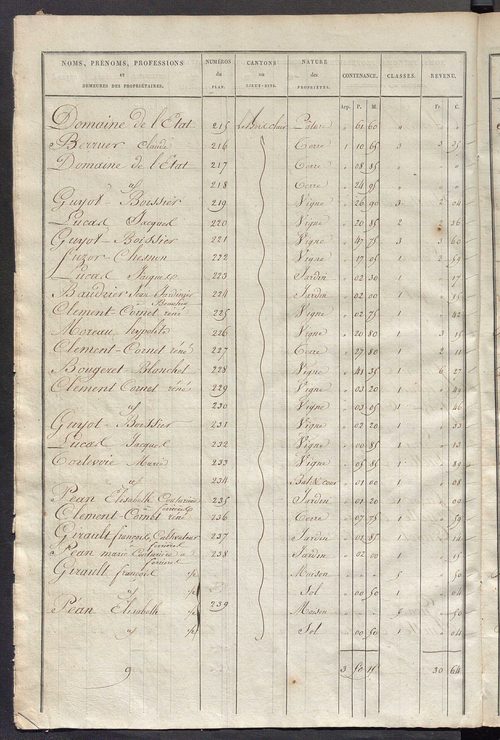 NOMS, PRÉNOMS, PROFESSIONS et DEMEURES DES PROPRIÉTAIRES. NUMÉROS du PLAN. CANTONS ou LIEUX-DITS. NATURE des PROPRIÉTÉS. CONTENANCE. CLASSES. REVENU.
Arp. P. M. Fr. C.
Domaine de l'État 215 61 60 "
Berruer Claude 216 Terre 1 10 65 3 3 35
Domaine de l'État 217 Terre " 08 85
id 218 Terre " 24 95
Guyot-Boissier 219 Vigne " 26 90 3 2 04
Lucas Jacques 220 Vigne " 20 85 2 2 36
Guyot-Boissier 221 Vigne " 47 75 3 3 60
Fuzor-Chesnon 222 Vigne " 17 05 1 2 59
Lucas Jacques 223 Jardin " 02 30 1 " 17
Baudrier Jean Jardinier 224 Jardin " 02 00 1 " 15
Clement-Cornet réné 225 Vigne " 02 75 1 " 42
Moreau hypolite 226 Vigne " 20 80 1 3 15
Clement-Cornet réné 227 Terre " 27 80 1 2 11
Bougeret-Blanchet 228 Vigne " 41 35 1 6 27
Clement Cornet réné 229 Vigne " 03 20 1 " 49
id 230 Vigne " 03 05 1 " 46
Guyot-Boissier 231 Vigne " 02 20 1 " 33
Lucas Jacques 232 Vigne " 00 85 1 " 13
233 Vigne " 05 85 1 " 89
id 234 Bat & cour " 01 00 1 " 08
Péan Elisabeth Couturière 235 Jardin " 01 20 1 " 09
Clement-Cornet réné 236 Terre " 07 75 1 " 59
Girault françois Cultivateur 237 Jardin " 01 85 1 " 14
Péan marie Couturière à 238 Jardin " 02 00 1 " 15
Girault françois Maison 5 " 50
id Sol " 00 50 1 " 04
Péan Elisabeth 239 Maison 5 " 50
id Sol " 00 50 1 " 04
9 3 50 30 64